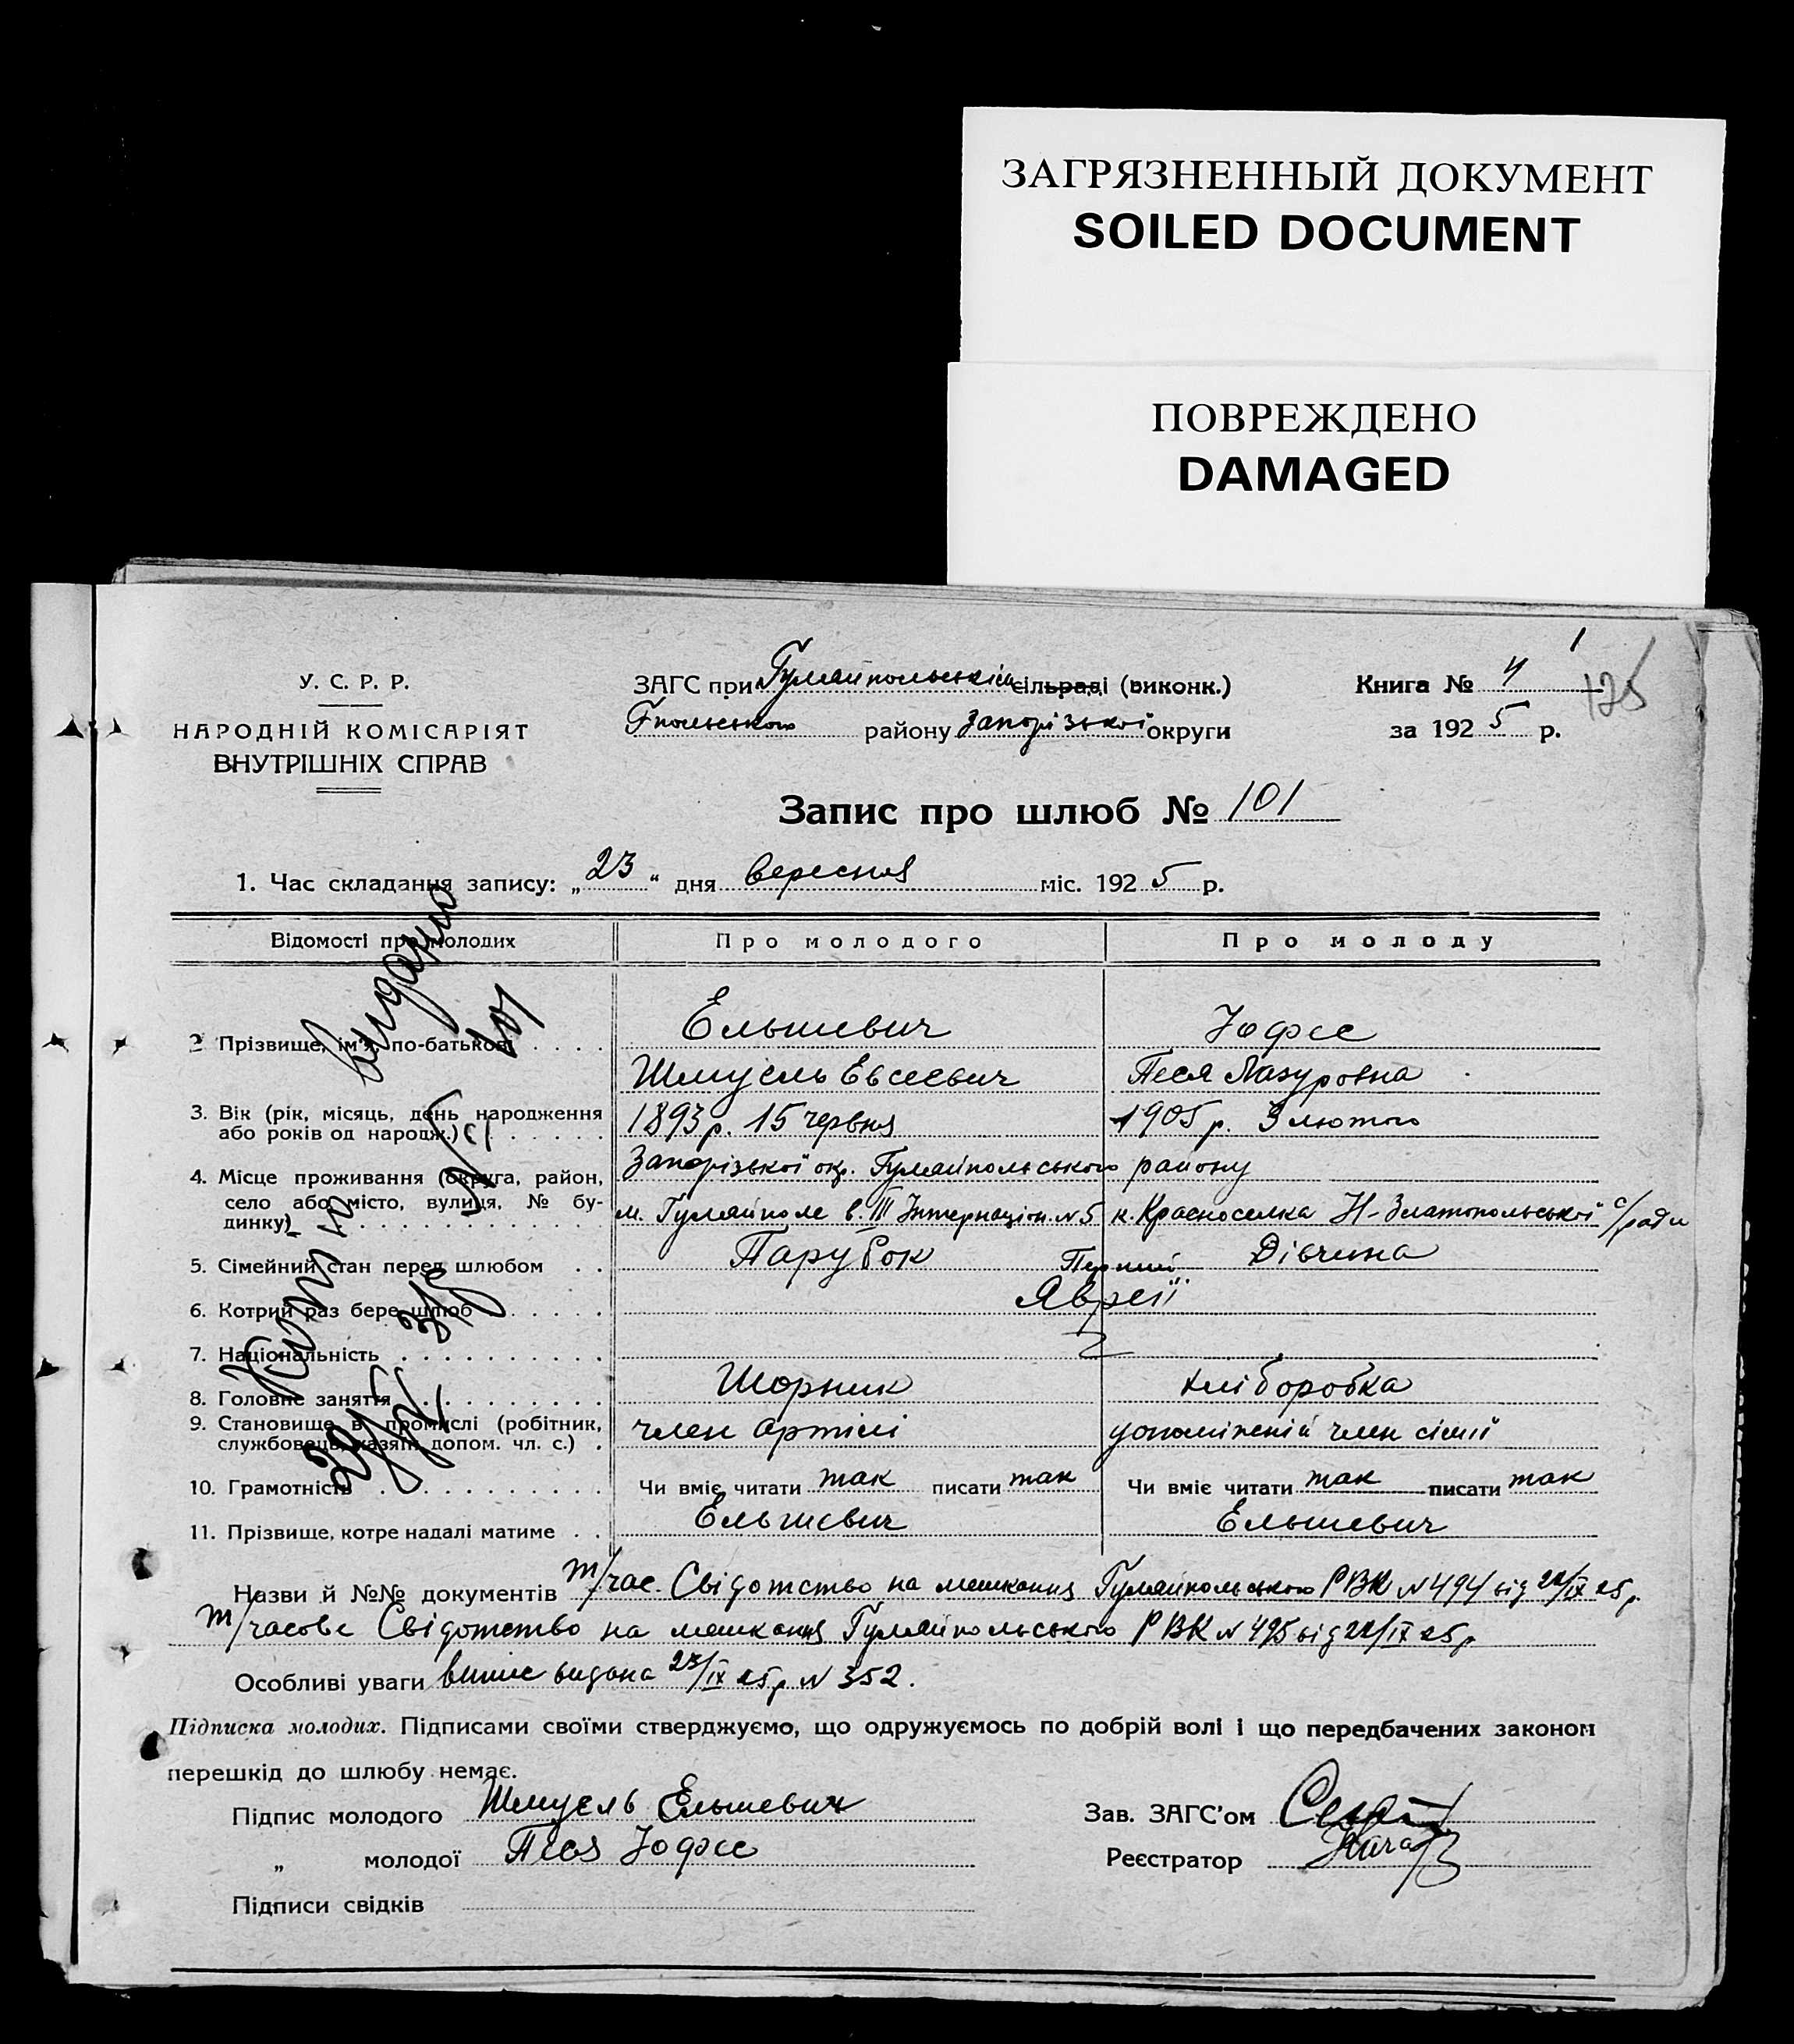 ЗАГРЯЗНЕННЫЙ ДОКУМЕНТ
SOILED DOCUMENT
ПОВРЕЖДЕНО
DAMAGED
1
У. С. Р. Р.
НАРОДНІЙ КОМІСАРІЯТ
ВНУТРІШНІХ СПРАВ
ЗАГС при Гуляйпольськім сільраді (виконк.)
Гпольського району Запорізької округи
Книга № 4
125
за 1925 р.
Запис про шлюб № 101
1. Час складання запису: „23“ дня вересня міс. 1925 р.
Відомості про молодих Про молодого Про молоду
2 Прізвище, ім'я, по-батькові Ельшевич Іофее
Шмуель Евсеевич Песя Лазуровна
3. Вік (рік, місяць, день народження
або років од народж.) 1893 р. 15 червня 1905 р. 3 лютого
4. Місце проживання (округа, район,
село або місто, вулиця, № бу-
динку)
Запорізької окр. Гуляйпольського району
м. Гуляйполе в. III Інтернаціон. № 5 к. Красноселка Н-Златопольської с/ради
5. Сімейний стан перед шлюбом Парубок Дівчина
Перший
6. Котрий раз бере шлюб
Явреї
7. Національність
8. Головне заняття Шорник хліборобка
9. Становище в промислі (робітник,
службовець, хазяїн, допом. чл. с.) член артілі член сімії
10. Грамотність Чи вміє читати так писати так Чи вміє читати так писати так
11. Прізвище, котре надалі матиме Ельшевич Ельшевич
видано
№ 101
Назви й №№ документів т/час. Свідотство на мешкання Гуляйпольського РВК № 494 від 22/IX 25 р.
т/часове Свідотство на мешкання Гуляйпольського РВК № 495 від 22/IX 25 р
Особливі уваги випис видана 23/IX 25 р № 352.
Підписка молодих. Підписами своїми стверджуємо, що одружуємось по добрій волі і що передбачених законом
перешкід до шлюбу немає.
Підпис молодого Шмуель Ельшевич
Зав. ЗАГС'ом
„ молодої Песя Іофее
Реєстратор
Підписи свідків